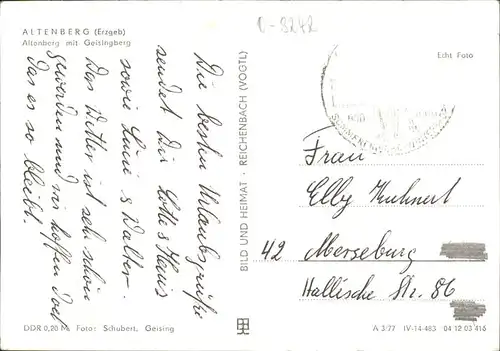 0-3242
ALTENBERG (Erzgeb)
Altenberg mit Geisingberg
Echt Foto
Die besten Urlaubsgrüße
sendet Dir Lotte & Hans
sowie Luci & Walter.
Das Wetter ist seh. schön
geworden und wir hoffen daß
das es so bleibt.
BILD UND HEIMAT · REICHENBACH (VOGTL)
Frau
Elly Kuhnert
42 Merseburg
Hallische Str. 86
DDR 0,20 M Foto: Schubert, Geising
A 3/77 IV-14-483 04 12 03 416